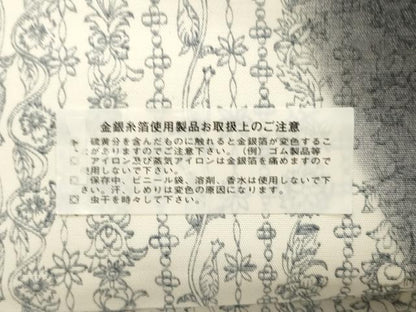 金銀糸箔使用製品お取扱上のご注意
硫黄分を含んだものに触れると金銀箔が変色するこ
とがありますのでご注意下さい。(例)ゴム製品等
アイロン及び蒸気アイロンは金銀箔を痛めますので
使用しないで下さい。
保存中、ビニール袋、溶剤、香水は使用しないで下
さい。汗、しめりは変色の原因になります。
虫干を時々して下さい。